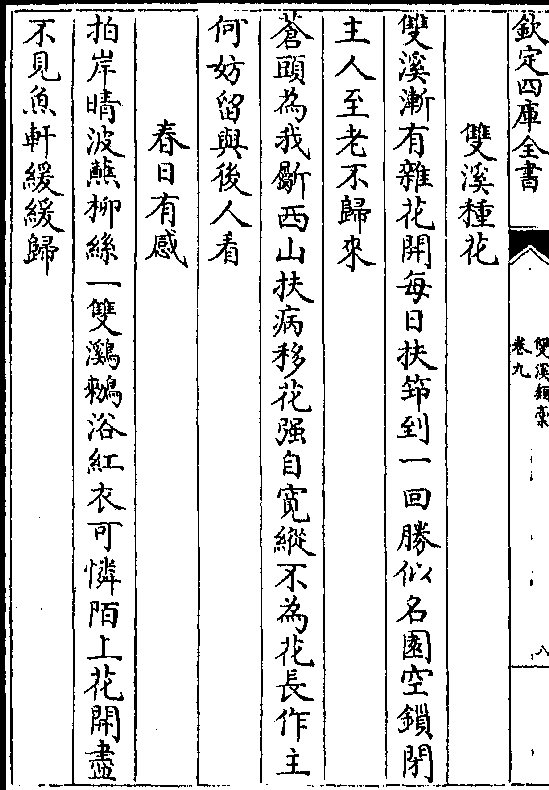 欽定四庫全書
雙溪類稾
卷九
八
雙溪種花
雙溪漸有雜花開每日扶筇到一回勝似名園空鎖閉
主人至老不歸來
蒼頭為我斸西山扶病移花强自寛縱不為花長作主
何妨留與後人看
春日有感
拍岸晴波蘸柳絲一雙鸂鶒浴紅衣可憐陌上花開盡
不見魚軒緩緩歸